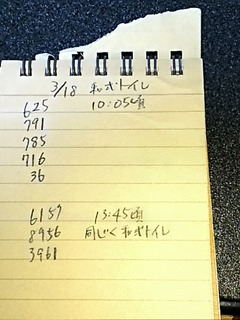 3/18 私ボトイレ
625 10:05頃
791
785
716
36
6157 13:45頃
8956 同じく私ボトイレ
3961